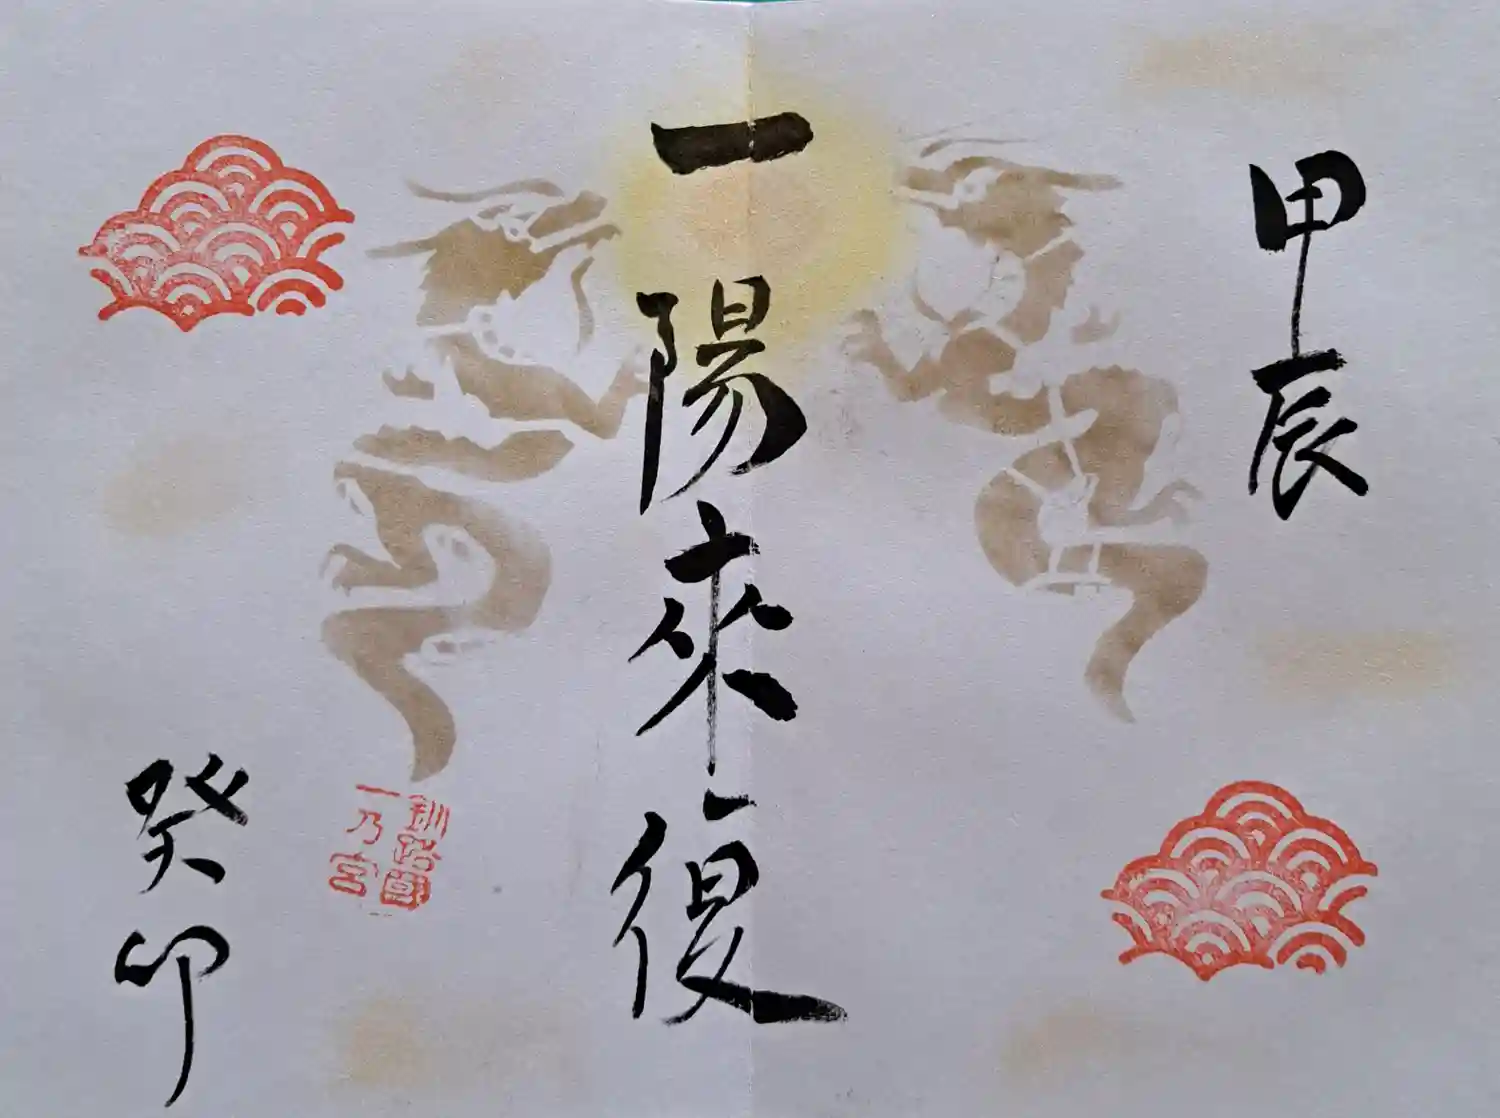 甲辰
一陽來復
癸卯
釧路國
一乃宮